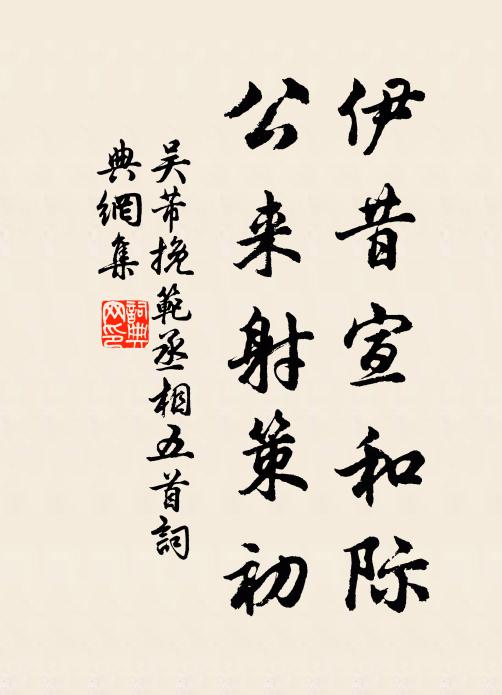 伊昔宣和际
公来射策初
吴芾挽範丞相五首詞
典網集
詞典网印